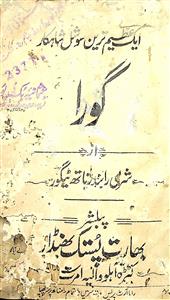 ایک عظیم ترین سوشل شاہکار
گورا
از
شری رابندر ناتھ ٹیگور
پبلشر
بھارت پستک بھنڈار
کٹڑہ اہلووالیہ امرتسر